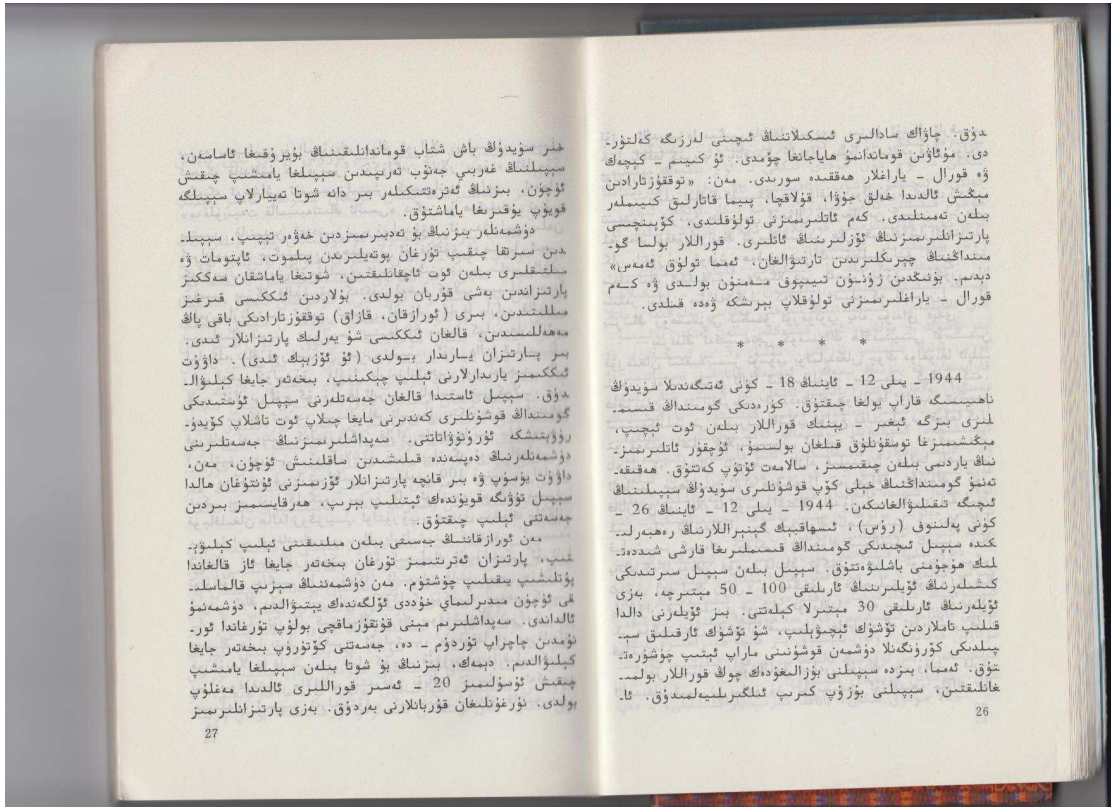 دۇق. چاۋاك سادالىرى ئىسكىلاتنىڭ ئىچىنى لەرزىگە كەلتۈر-
دى. مۇئاۋىن قوماندانمۇ ھاياجانغا چۆمدى. ئۇ كىيىم - كېچەك
ۋە قورال - ياراغلار ھەققىدە سورىدى. مەن: «توققۇزتارادىن
مېڭىش ئالدىدا خەلق جۇۋا، قۇلاقچا، پىيما قاتارلىق كىيىملەر
بىلەن تەمىنلىدى. كەم ئاتلىرىمىزنى تولۇقلىدى، كۆپىنچىسى
پارتىزانلىرىمىزنىڭ ئۆزلىرىنىڭ ئاتلىرى. قوراللار بولسا گو-
مىنداڭنىڭ چېرىكلىرىدىن تارتىۋالغان، ئەمما تولۇق ئەمەس»
دېدىم. بۇنىڭدىن زۇنۇن تىيىپوف مەمنۇن بولدى ۋە كەم
قورال - ياراغلىرىمىزنى تولۇقلاپ بېرىشكە ۋەدە قىلدى.
* * * *
1944 - يىلى 12 - ئاينىڭ 18 - كۈنى ئەتىگەندىلا سۈيدۈڭ
ناھىيىسىگە قاراپ يولغا چىقتۇق. كۈرەدىكى گومىنداڭ قىسىم-
لىرى بىزگە ئېغىر - يېنىك قوراللار بىلەن ئوت ئېچىپ،
مېڭىشىمىزغا توسقۇنلۇق قىلغان بولسىمۇ، ئۇچقۇر ئاتلىرىمىز-
نىڭ ياردىمى بىلەن چىقىمسىز، سالامەت ئۆتۈپ كەتتۇق. ھەقىقە-
تەنمۇ گومىنداڭنىڭ خېلى كۆپ قوشۇنلىرى سۈيدۈڭ سېپىلىنىڭ
ئىچىگە تىقىلىۋالغانىكەن. 1944 - يىلى 12 - ئاينىڭ 26 -
كۈنى پەلىنوف (رۇس)، ئىسھاقبېك گېنېراللارنىڭ رەھبەرلى-
كىدە سېپىل ئىچىدىكى گومىنداڭ قىسىملىرىغا قارشى شىددەت-
لىك ھۇجۇمنى باشلىۋەتتۇق. سېپىل بىلەن سېپىل سىرتىدىكى
كىشىلەرنىڭ ئۆيلىرىنىڭ ئارىلىقى 100 - 50 مېتىرچە، بەزى
ئۆيلەرنىڭ ئارىلىقى 30 مېتىرلا كېلەتتى. بىز ئۆيلەرنى دالدا
قىلىپ تاملاردىن تۆشۈك ئېچىۋېلىپ، شۇ تۆشۈك ئارقىلىق سې-
پىلدىكى كۆرۈنگەنلا دۈشمەن قوشۇنىنى ماراپ ئېتىپ چۈشۈرەت-
تۇق. ئەمما، بىزدە سېپىلنى بۇزالىغۇدەك چوڭ قوراللار بولمى-
غانلىقتىن، سېپىلنى بۇزۇپ كىرىپ ئىلگىرىلىيەلمىدۇق. ئا-
26
خىر سۈيدۈڭ باش شتاب قوماندانلىقىنىڭ بۇيرۇقىغا ئاساسەن،
سېپىلنىڭ غەربىي جەنۇب تەرىپىدىن سېپىلغا يامىشىپ چىقىش
ئۈچۈن، بىزنىڭ ئەترەتتىكىلەر بىر دانە شوتا تەييارلاپ سېپىلگە
قويۇپ يۇقىرىغا ياماشتۇق.
دۈشمەنلەر بىزنىڭ بۇ تەدبىرىمىزدىن خەۋەر تېپىپ، سېپىل-
دىن سىرتقا چىقىپ تۇرغان پوتەيلىرىدىن پىلموت، ئاپتومات ۋە
مىلتىقلىرى بىلەن ئوت ئاچقانلىقتىن، شوتىغا ياماشقان سەككىز
پارتىزاندىن بەشى قۇربان بولدى. بۇلاردىن ئىككىسى قىرغىز
مىللىتىدىن، بىرى (ئورازقان، قازاق) توققۇزتارادىكى باقى پاڭ
مەھەللىسىدىن، قالغان ئىككىسى شۇ يەرلىك پارتىزانلار ئىدى.
بىر پارتىزان يارىدار بولدى (ئۇ ئۆزبېك ئىدى). داۋۇت
ئىككىمىز يارىدارلارنى ئېلىپ چېكىنىپ، بىخەتەر جايغا كېلىۋال-
دۇق. سېپىل ئاستىدا قالغان جەسەتلەرنى سېپىل ئۈستىدىكى
گومىنداڭ قوشۇنلىرى كەندىرنى مايغا چىلاپ ئوت تاشلاپ كۆيدۈ-
رۈۋېتىشكە ئۇرۇنۇۋاتاتتى. سەپداشلىرىمىزنىڭ جەسەتلىرىنى
دۈشمەنلەرنىڭ دەپسەندە قىلىشىدىن ساقلىنىش ئۈچۈن، مەن،
داۋۇت يۈسۈپ ۋە بىر قانچە پارتىزانلار ئۆزىمىزنى ئۇنتۇغان ھالدا
سېپىل تۈۋىگە قويۇندەك ئېتىلىپ بېرىپ، ھەرقايسىمىز بىردىن
جەسەتنى ئېلىپ چىقتۇق.
مەن ئورازقاننىڭ جەسىتى بىلەن مىلتىقىنى ئېلىپ كېلىۋې-
تىپ، پارتىزان ئەترىتىمىز تۇرغان بىخەتەر جايغا ئاز قالغاندا
پۇتلىشىپ يىقىلىپ چۈشتۈم. مەن دۈشمەننىڭ سېزىپ قالماسلى-
قى ئۈچۈن مىدىرلىماي خۇددى ئۆلگەندەك يېتىۋالدىم، دۈشمەنمۇ
ئالداندى. سەپداشلىرىم مېنى قۇتقۇزماقچى بولۇپ تۇرغاندا ئور-
نۇمدىن چاچراپ تۇردۇم - دە، جەسەتنى كۆتۈرۈپ بىخەتەر جايغا
كېلىۋالدىم. دېمەك، بىزنىڭ بۇ شوتا بىلەن سېپىلغا يامىشىپ
چىقىش ئۇسۇلىمىز 20 - ئەسىر قوراللىرى ئالدىدا مەغلۇپ
بولدى. نۇرغۇنلىغان قۇربانلارنى بەردۇق. بەزى پارتىزانلىرىمىز
27